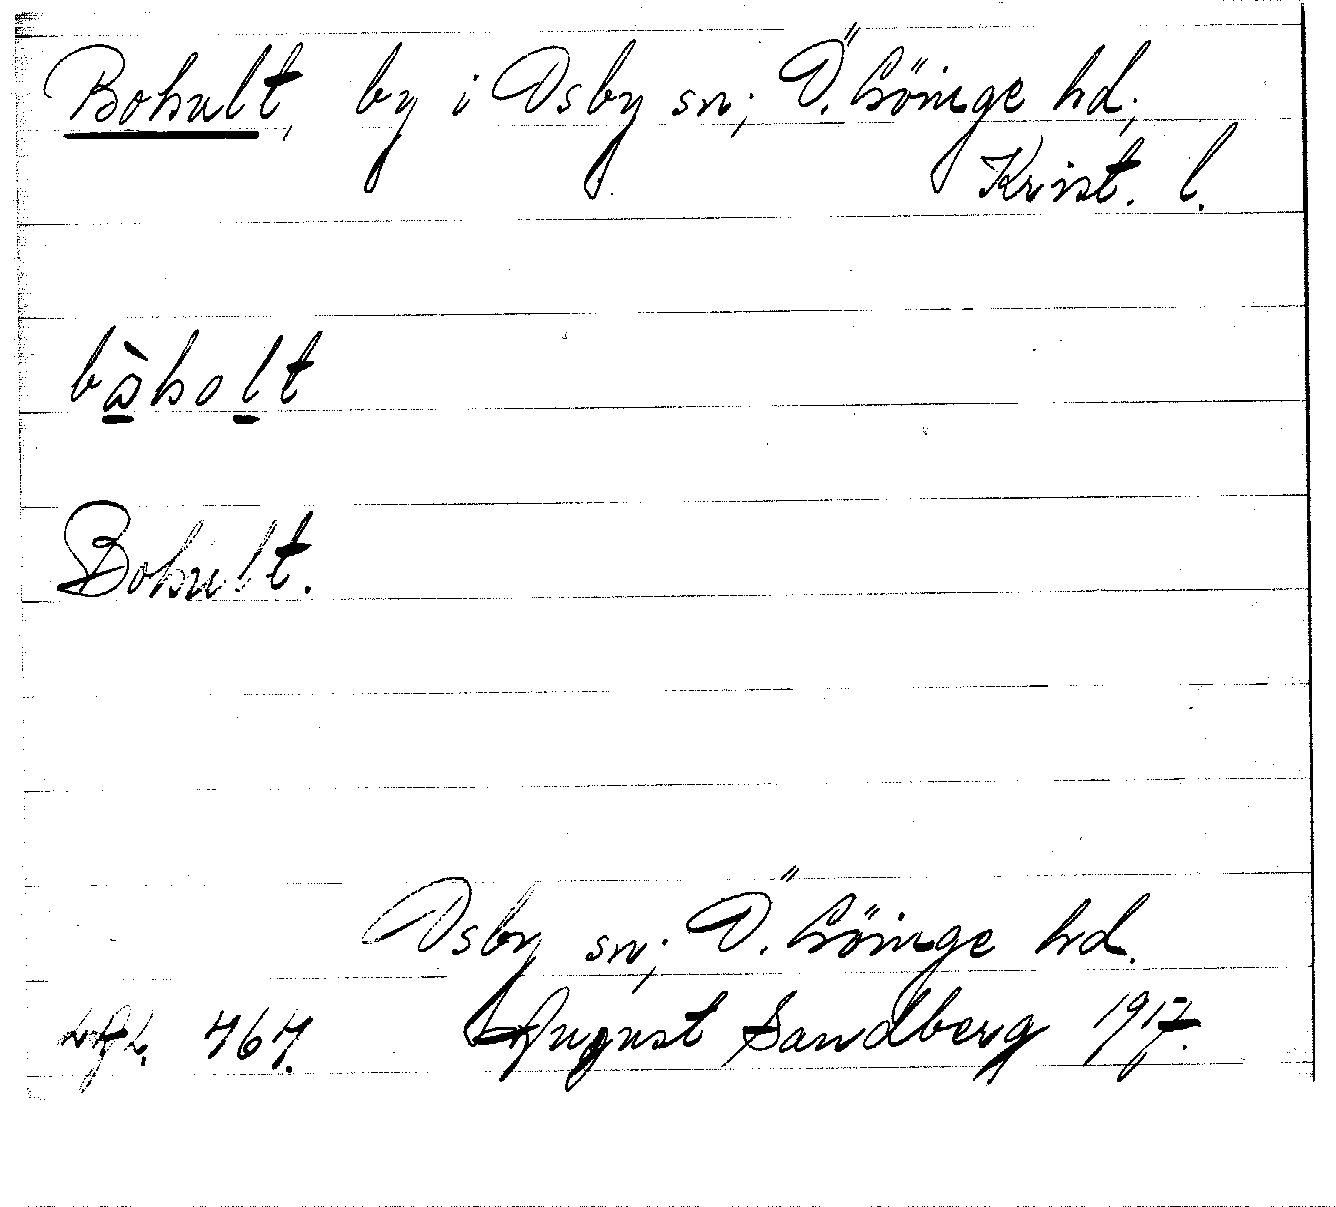 Bohult, by i Osby sn; Ö. Göinge hd,
Krist. l.
bàholt
Bohult.
Osby sn; Ö. Göinge hd.
August Sandberg 1917.